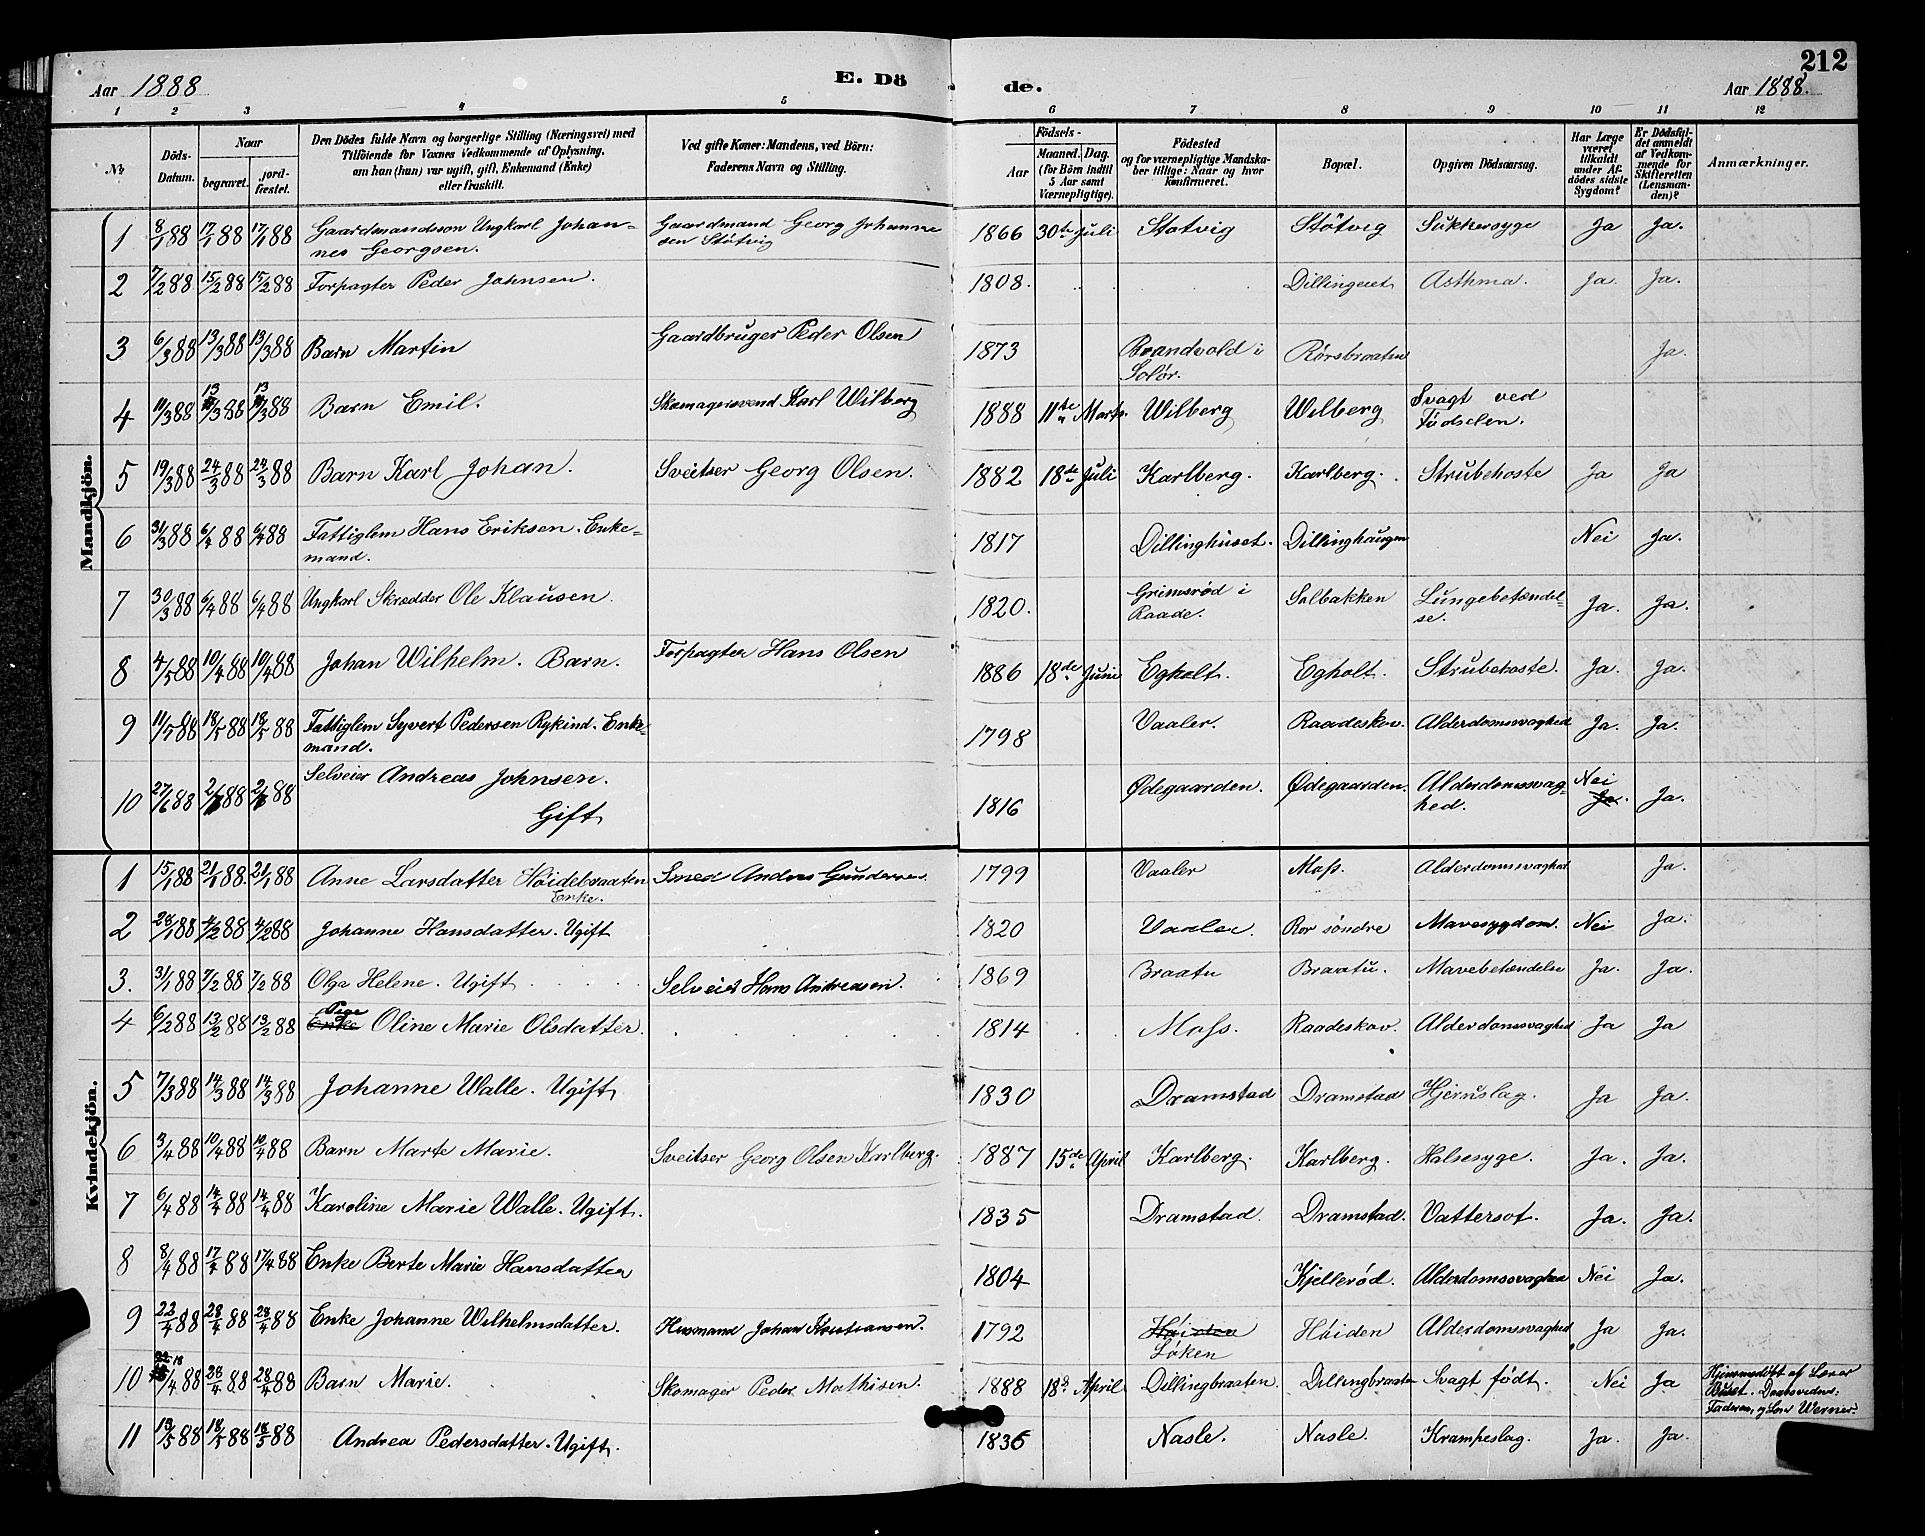 212
Aar 1888
E. Dö de.
Aar 1888.
1 2 3 4 5 6 7 8 9 10 11 12
No
Döds-Datum.
Naar
begravet.
jord-fæstet.
Den Dödes fulde Navn og borgerlige Stilling (Næringsvei) med
Tilföiende for Voxnes Vedkommende af Oplysning,
om han (hun) var ugift, gift, Enkemand (Enke)
eller fraskilt.
Ved gifte Koner: Mandens, ved Börn:
Faderens Navn og Stilling.
Födsels-
Aar
Maaned. Dag.
(for Börn indtil
5 Aar samt
Værnepligtige).
Födested
og for værnepligtige Mandska-
ber tillige: Naar og hvor
konfirmeret.
Bopæl.
Opgiven Dödsaarsag.
Har Læge
været
tilkaldt
under Af-
dödes sidste
Sygdom?
Er Dödsfal-
det anmeldt
af Vedkom-
mende for
Skifteretten
(Lensman-
den)?
Anmærkninger.
Mandkjön.
1 8/1 88 17/1 88 17/1 88 Gaardmandssön Ungkarl Johan-
nes Georgsen. Gaardmand Georg Johanne
sen Støtvig 1866 30te Juli Støtvig Støtvig Sukkersyge Ja Ja.
2 7/2 88 15/2 88 15/2 88 Forpagter Peder Johnsen. 1808. Dillingeret Asthma. Ja. Ja.
3 6/3 88 13/3 88 13/3 88 Barn Martin Gaardbruger Peder Olsen 1873 Brandvold i
Solör. Rörsbraaten Ja.
4 11/3 88 13/3 88 13/3 88 Barn Emil. Skomagersvend Karl Wilberg 1888 11te Marts. Wilberg Wilberg Svagt ved
Födselen.
5 19/3 88 24/3 88 24/3 88 Barn Karl Johan. Sveitser Georg Olsen. 1882 18de Juli Karlberg. Karlberg. Strubehoste Ja Ja
6 31/3 88 6/4 88 6/4 88 Fattiglem Hans Eriksen. Enke-
mand. 1817 Dillinghuset. Dillinghaugen Nei Ja.
7 30/3 88 6/4 88 6/4 88 Ungkarl Skrædder Ole Klausen. 1820. Grimsröd i
Raade. Solbakken Lungebetændel-
se. Ja. Ja.
8 4/5 88 10/4 88 10/4 88 Johan Wilhelm. Barn. Forpagter Hans Olsen 1886 18de Juni Egholt. Egholt. Strubehoste. Ja. Ja.
9 11/5 88 18/5 88 18/5 88 Fattiglem Syvert Pedersen Rykind. Enke-
mand. 1798 Vaaler. Raadeskov. Alderdomssvaghed Ja. Ja.
10 27/6 88 2/7 88 2/7 88 Selveier Andreas Johnsen.
Gift 1816 Ødegaarden. Ødegaarden. Alderdomssvag-
hed. Nei
Ja. Ja.
Kvindekjön.
1 15/1 88 21/1 88. 21/1 88 Anne Larsdatter Høidebraaten
Enke. Smed Anders Gundersen. 1799 Vaaler Moss. Alderdomssvaghed Ja.
2 28/1 88 4/2 88 4/2 88 Johanne Hansdatter. Ugift 1820 Vaaler. Ror söndre Mavesygdom. Nei Ja.
3. 31/1 88 7/2 88 7/2 88 Olga Helene. Ugift Selveier Hans Andreasen. 1869 Braatu Braatu. Mavebetændelse Ja. Ja.
4 6/2 88 13/2 88 13/2 88 Enke Pige Oline Marie Olsdatter. 1814 Moss. Raadeskov. Alderdomssvaghed Ja Ja
5 7/3 88 14/3 88 14/3 88 Johanne Walle. Ugift 1830 Dramstad Dramstad Hjerneslag. Ja Ja.
6 3/4 88 10/4 88 10/4 88 Barn Marte Marie. Sveitser Georg Olsen Karlberg. 1887 15de April Karlberg. Karlberg. Halssyge. Ja. Ja.
7 6/4 88 14/4 88 14/4 88 Karoline Marie Walle. Ugift. 1835 Dramstad. Dramstad. Vattersot. Ja. Ja.
8 8/4 88 17/4 88 17/4 88 Enke Berte Marie Hansdatter 1804 Kjelleröd. Alderdomssvaghed Nei Ja.
9 22/4 88 28/4 88 28/4 88 Enke Johanne Wilhelmsdatter. Husmand Johan Kristiansen. 1792 Høiden
Løken Høiden Alderdomssvaghed Ja Ja.
10 18/4 88 28/4 88 28/4 88 Barn Marie. Skomager Peder Mathisen. 1888 18de April Dillingbraaten. Dillingbraaten Svagt födt. Nei Ja Hjemmedöbt af Lærer
Faderen, og Werner.
11 13/5 88 18/5 88 18/5 88 Andrea Pedersdatter. Ugift. 1836 Nasle. Nasle. Krampeslag. Ja. Ja.